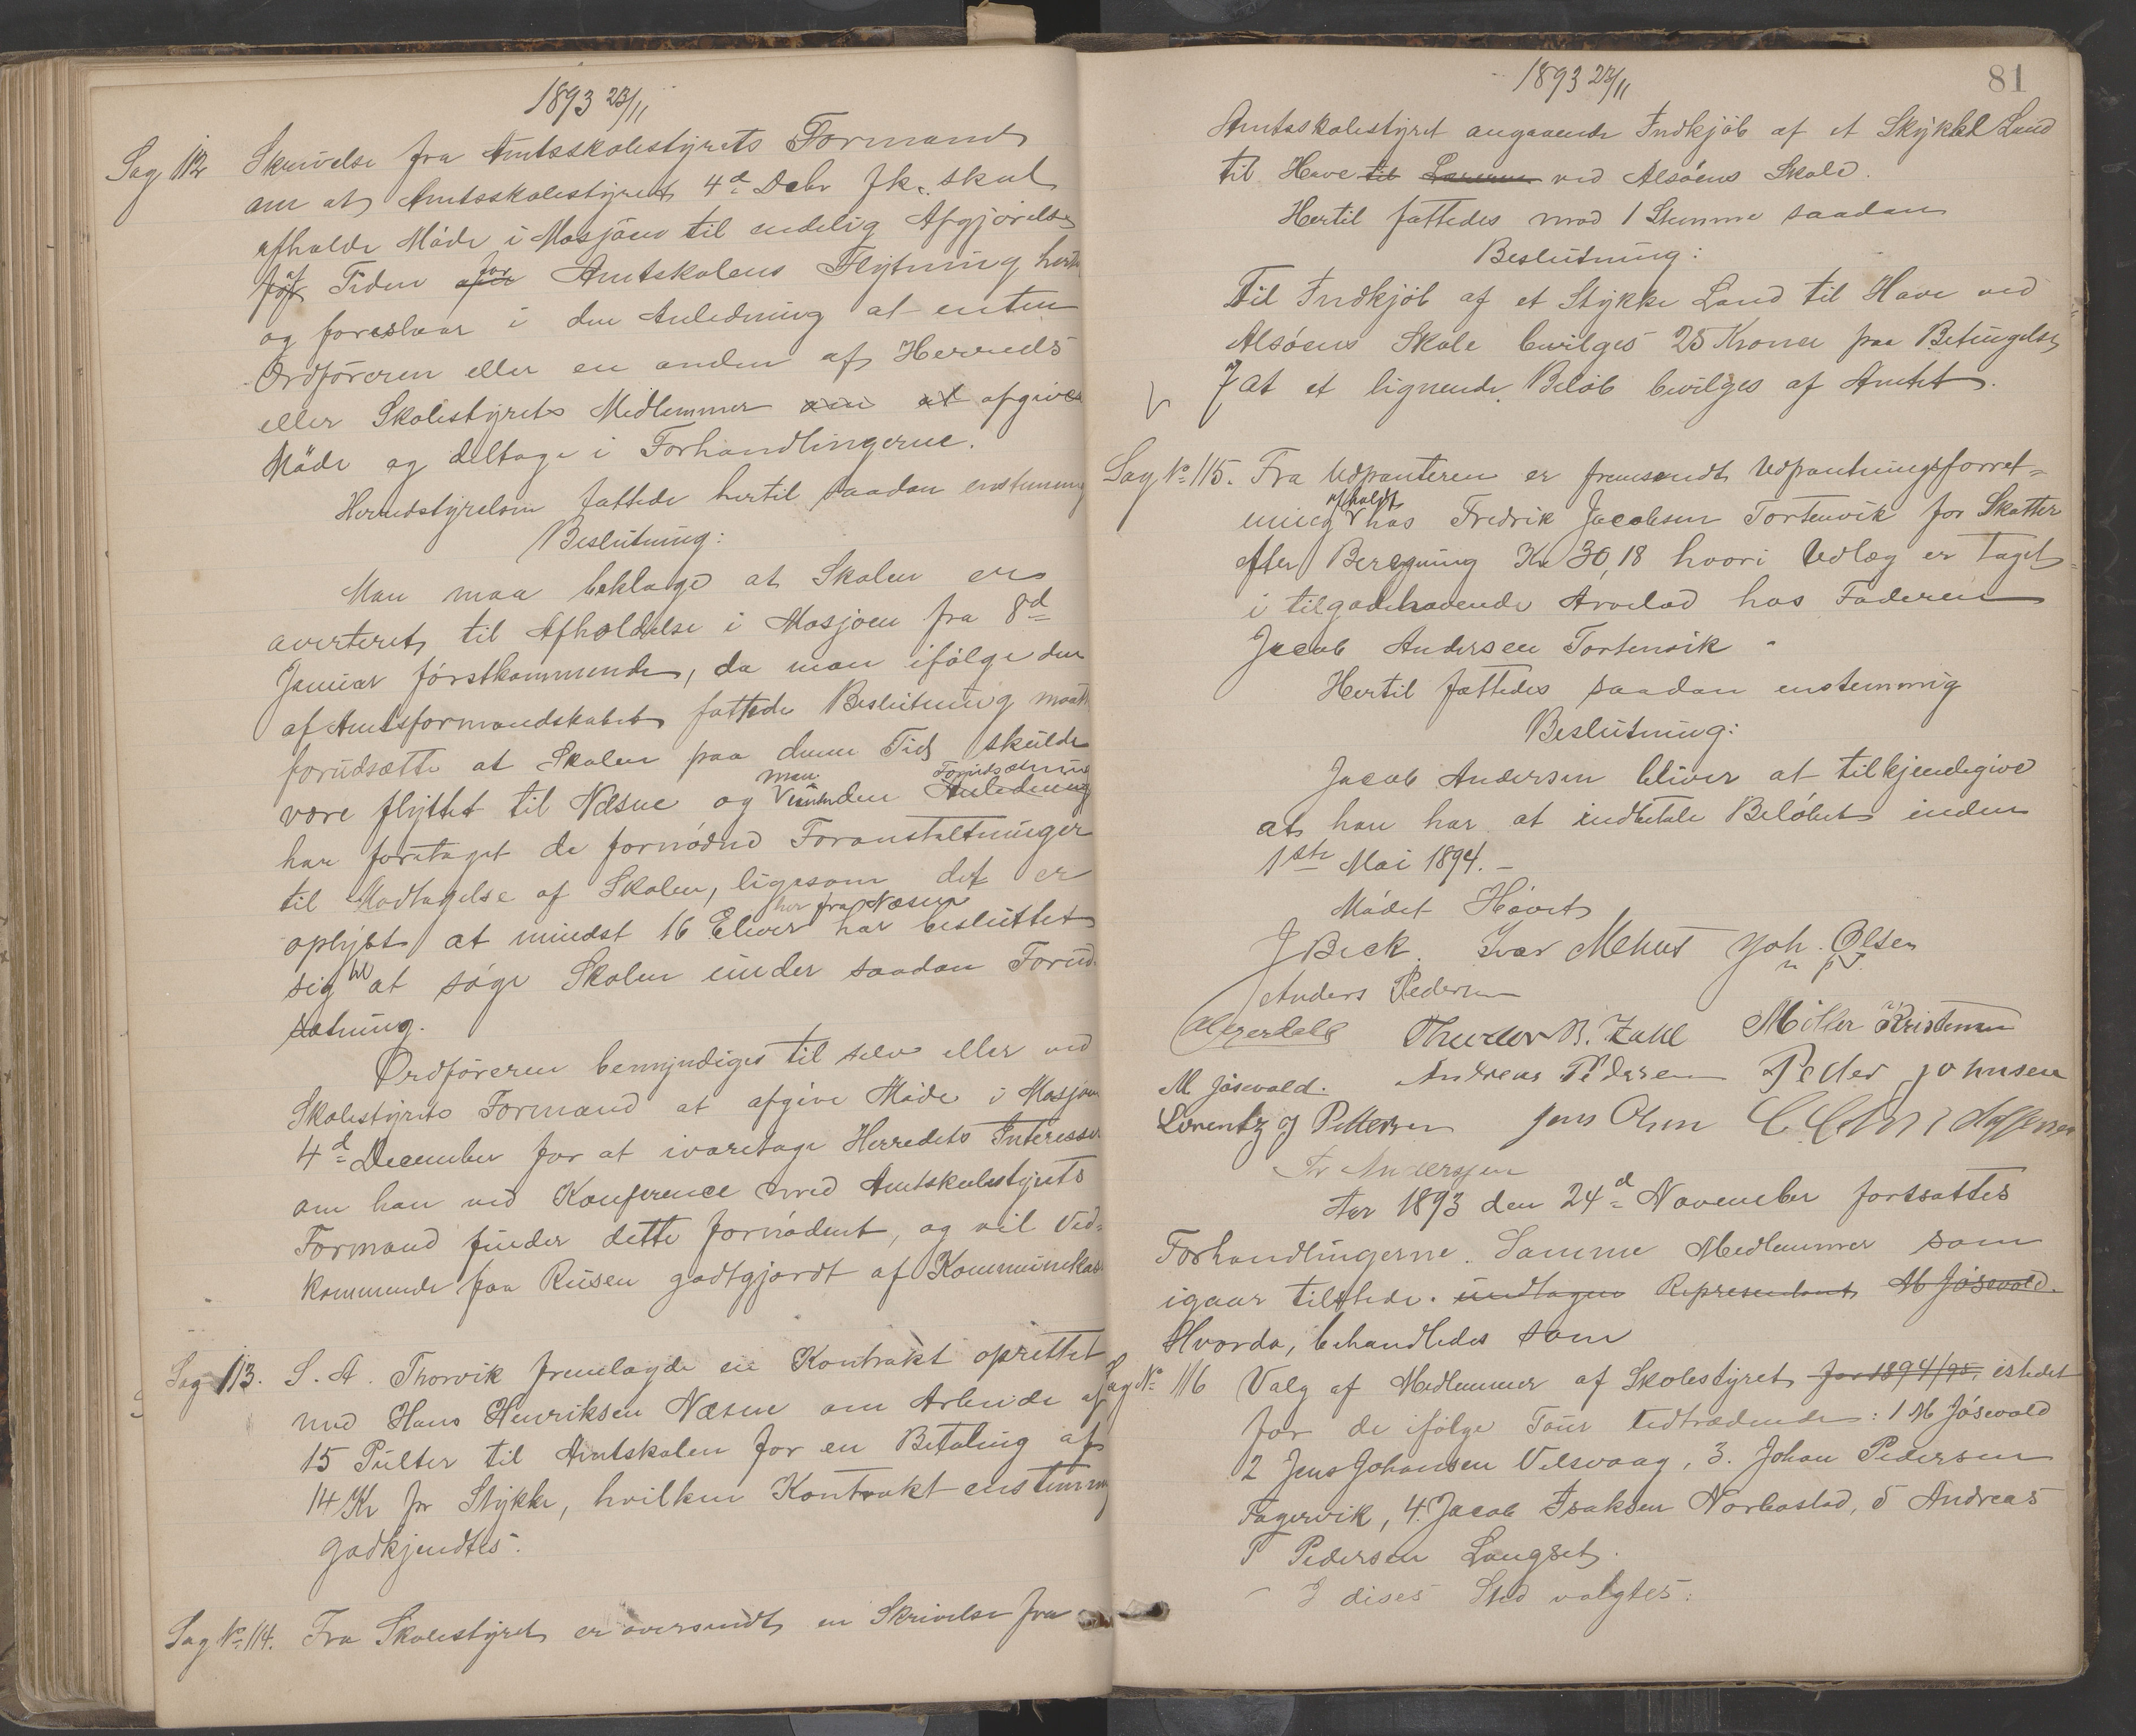 1893 23/11
Sag 112 Skrivelse fra Amtsskolestyrets Formand
om at Amtsskolestyret 4d Debr fk. skal
afholde Møde i Mosjøen til endelig Afgjørelse
af Tiden for Amtskolens Flytning hertil
og foreslaar i den Anledning at enten
Ordføreren eller en anden af Herreds
eller Skolestyrets Medlemmer om at afgive
Møde og deltage i Forhandlingerne.
Herredstyrelsen fattede hertil saadan enstemmig
Beslutning:
Man maa beklage at Skolen er
averteret til Afholdelse i Mosjøen fra 8d
Januar førstkommende, da man ifølge den
af Amtsformandskabet fattede Beslutning maatte
forudsætte at Skolen paa denne Tid skulde
være flyttet til Næsne og man under den Forudsætning Anledning
har foretaget de fornødne Foranstaltninger
til Modtagelse af Skolen, ligesom det er
oplyst at mindst 16 Elever her fra Næsne har besluttet
sig til at søge Skolen under saadan Forud-
sætning.
Ordføreren bemyndiges til selv eller ved
Skolestyrets Formand at afgive Møde i Mosjøen
4d December for at ivaretage Herredets Interesser
om han ved Konference med Amtskolestyrets
Formand finder dette fornødent, og vil Ved-
kommende faa Reisen godtgjordt af Kommunekas
Sag 113. S. A. Thorvik fremlagde en Kontrakt oprettet
med Hans Henriksen Næsne om Arbeide af
15 Pulter til Amtskolen for en Betaling af
14 Kr pr Stykke, hvilken Kontrakt enstemmig
godkjendtes.
Sag No 114. Fra Skolestyret er oversendt en Skrivelse fra
1893 23/11
81
Amtsskolestyret angaaende Indkjøb af et Stykke Land
til Have til Læreren ved Alsøens Skole.
Hertil fattedes mod 1 Stemme saadan
Beslutning:
Til Indkjøb af et Stykke Land til Have ved
Alsøens Skole bevilges 25 Kroner paa Betingelse
at et lignende Beløb bevilges af Amtet.
Sag No 115. Fra Udpanteren er fremsendt Udpantningsforret-
ning afholdt hos Fredrik Jacobsen Tortenvik for Skatter
efter Beregning Kr 30,18 hvori Udlæg er taget
i tilgodehavende Arvelod hos Faderen
Jacob Andersen Tortenvik -
Hertil fattedes saadan enstemmig
Beslutning:
Jacob Andersen bliver at tilkjendegive
at han har at indbetale Beløbet inden
1ste Mai 1894. -
Mødet Hævet
J Beck. Ivar Mehus Joh. Olsen
m p P.
Anders Pedersen
Theodor B. Zahl Møller Kristensen
M Jøsevold. Andreas Pedersen Peder Johnsen
Lorentz J Pettersen Jens Olsen
Fr Anderssen
Aar 1893 den 24d November fortsattes
Forhandlingerne. Samme Medlemmer som
igaar tilstede. undtagen Repræsentant M Jøsevold.
Hvorda, behandledes som
Sag No 116 Valg af Medlemmer af Skolestyret for 1894/95, istedet
for de ifølge Tour udtrædende: 1 M Jøsevold
2 Jens Johansen Velsvaag, 3. Johan Pedersen
Fagervik, 4. Jacob Isaksen Norbostad, 5 Andreas
P Pedersen Langset.
I dises Sted valgtes: